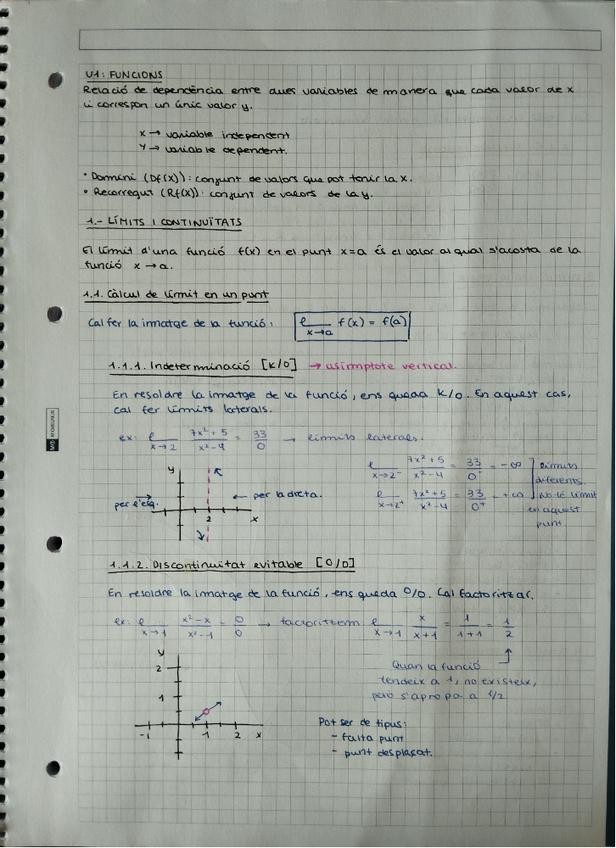 U1: FUNCIONS
Relació de dependència entre dues variables de manera que cada valor de x
li correspon un únic valor y.
x → variable independent
y → variable dependent.
• Domini (Df(x)): conjunt de valors que pot tenir la x.
• Recorregut (Rf(x)): conjunt de valors de la y.
1.- LÍMITS I CONTINUÏTATS
El límit d'una funció f(x) en el punt x=a és el valor al qual s'acosta de la
funció x → a.
1.1. Càlcul de límit en un punt
Cal fer la imatge de la funció: ℓ x→a f(x) = f(a)
1.1.1. Indeterminació [k/0] → asímptote vertical.
En resoldre la imatge de la funció, ens queda k/0. En aquest cas,
cal fer límits laterals.
ex: ℓ x→2 7x²+5 / x²-4 = 33/0 → límits laterals.
ℓ x→2⁻ 7x²+5 / x²-4 = 33/0⁻ = -∞
ℓ x→2⁺ 7x²+5 / x²-4 = 33/0⁺ = +∞
Límits
diferents.
No té límit
en aquest
punt.
y
per l'esq.
← per la dreta.
2
x
1.1.2. Discontinuïtat evitable [0/0]
En resoldre la imatge de la funció, ens queda 0/0. Cal factoritzar.
ex: ℓ x→1 x²-x / x²-1 = 0/0 → factoritzem ℓ x→1 x / x+1 = 1 / 1+1 = 1/2
Quan la funció
tendeix a 1, no existeix,
però s'apropa a 1/2
y
2
1
-1 1 2 x
Pot ser de tipus:
- falta punt
- punt desplaçat.